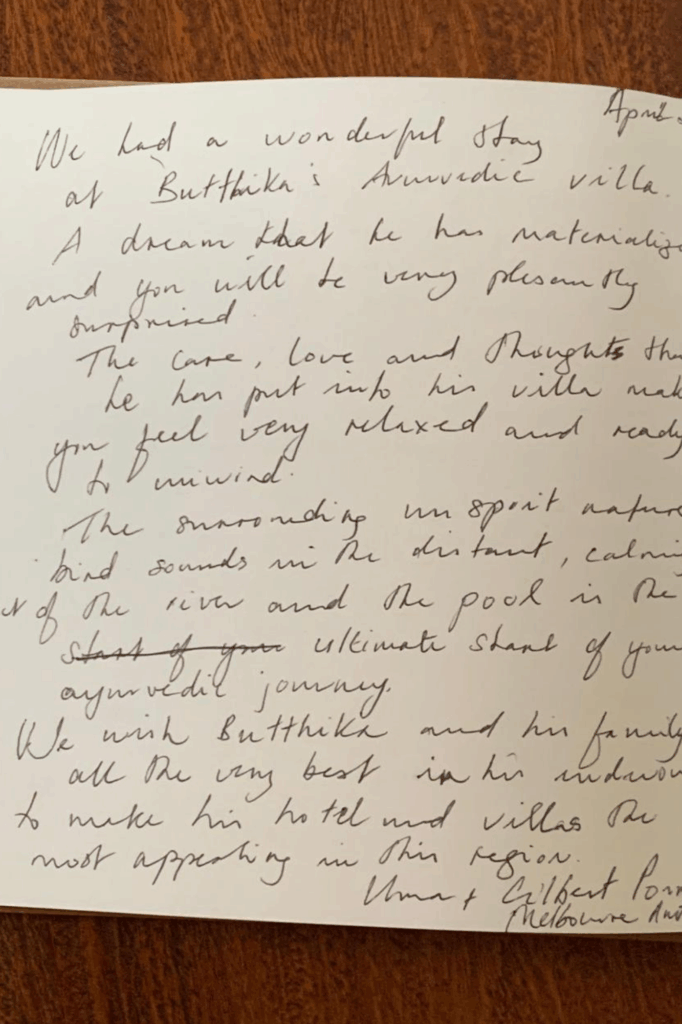 April
We had a wonderful stay
at Butthika's Ayurvedic villa.
A dream that he has materialize
and you will be very plesantly
surprised.
The care, love and thoughts tha
he has put into his villa mak
you feel very relaxed and ready
to unwind.
The surrounding unspoit nature
bird sounds in the distant, calmi
of the river and the pool is the
start of your ultimate start of your
ayurvedic journey.
We wish Butthika and his family
all the very best in his
to make his hotel and villas the
most appealing in this region.
Uma + Gilbert
Melbourne